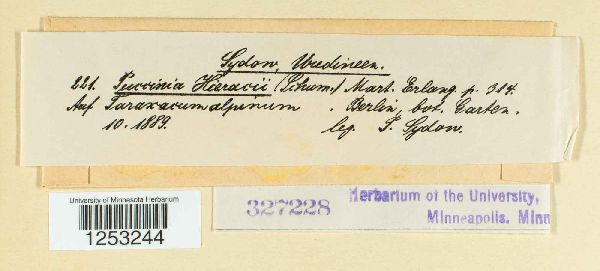 Sydow, Uredineen.
221. Puccinia Hieracii (Schum.) Mart. Erlang. p. 314.
Auf Taraxacum alpinum. Berlin, bot. Garten.
10. 1889. leg. P. Sydow.
University of Minnesota Herbarium
1253244
327228
Herbarium of the University,
Minneapolis. Minn